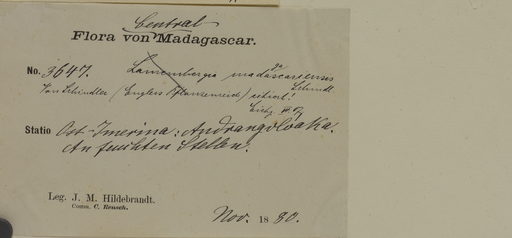 Central
Flora von Madagascar.
No. 3647. madagascariensis
Schindl
Von Schindler (Englers Pflanzenreich) citiert!
Statio Ost-Imerina: Andrangoloaka.
An feuchten Stellen.
Leg. J. M. Hildebrandt.
Comm. C. Rensch.
Nov. 1880.